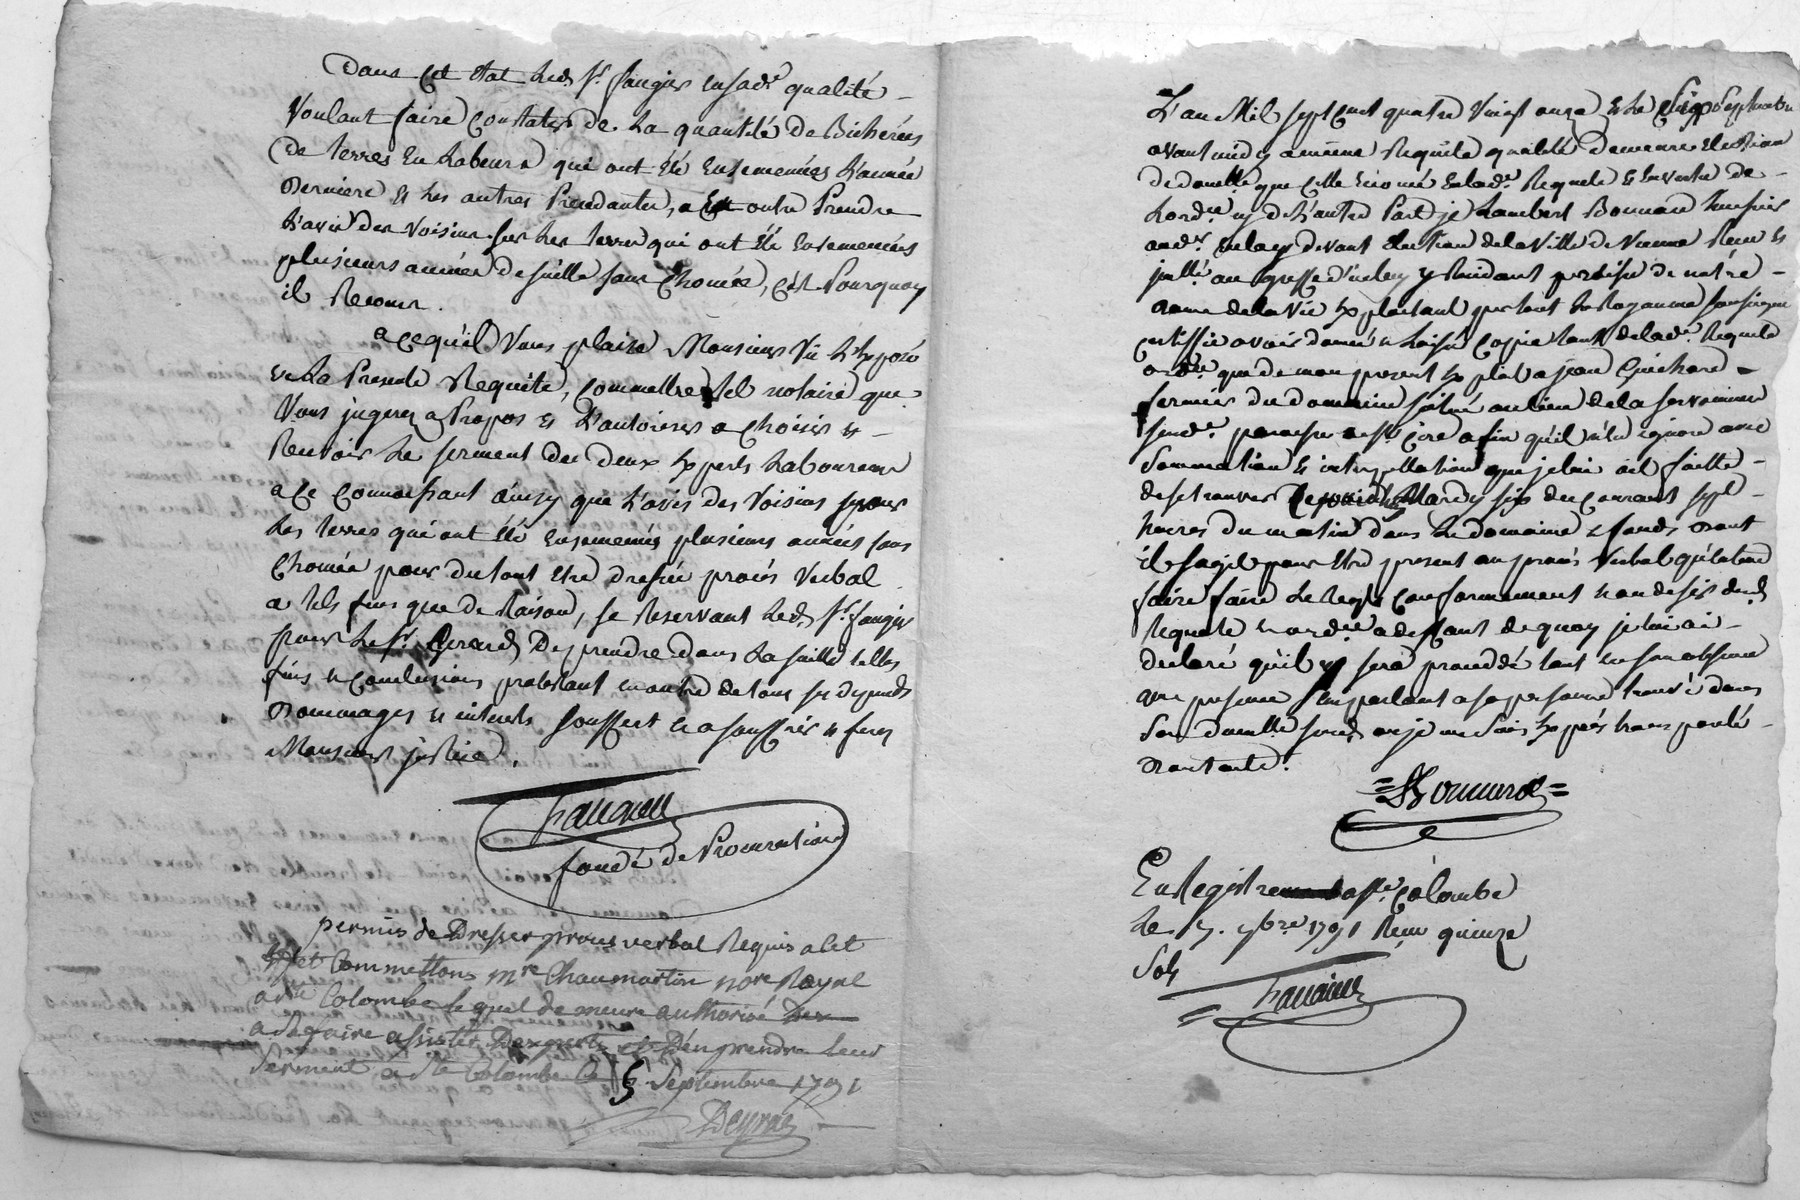 Dans cet Etat Led. Sr. faugier en sade. qualité
Voulant faire Constater de La quantité de Bicherées
De terres En Labeurs qui ont Eté Ensemencées L'année
Derniere & Les autres Precedantes, & En outre Prendre
L'avis Des voisins sur Les terres qui ont Eté Ensemencées
plusieurs années de suitte sans Chomée, c'est Pourquoy
il Recours.
a ce qu'il Vous plaise Monsieur Vû L'Exposé
en La Presente Requête, Commettre tel notaire que
Vous jugerez a Propos & L'autoriser a Choisir &
Recevoir Le serment de deux Experts Laboureurs
a ce Connoissant ainsy que L'avis des Voisins pour
Les terres qui ont Eté Ensemencées plusieurs années sans
Chomée pour du tout Etre dressée procés Verbal
a tels fins que de Raison, se Reservant Led. Sr. faugier
pour Le Sr. Girard De prendre dans La suitte telles
fins & Conclusions protestant en outre de tous ses depends
Dommages & interets souffert & a souffrir & ferez
Monsieur justice.
fondé de Procuration
permis de Dresser proces verbal Requis a cet
Effet Commettons Mre. Chaumartin nore. Royal
a Ste Colombe lequel demeure authorisé
a se faire assister Dexperts et D'en prendre leur
serment a Ste Colombe Le 5 Septembre 1791
L'an Mil sept Cent quatre Vingt onze & Le Septembre
avant midy a meme Requête qualité Demeure Election
de domicille que Celle Enoncé En lade. Requete & En vertu de
Lordce. y de L'autre Part je Lambert Bonnard huissier
Election de la Ville de Vienne Recu &
au greffe d'icelle y Residant
Exploitant par tout Le Royaume soussigné
certiffie avoir donné & Laissé Copie tant de lade. Requete
ordce. que de mon present Exploit a jean Guichard
fermier du domaine situé au lieu de la
paroisse de St. Cire afin qu'il n'En ignore avec
Sommation & interpellation que je lui ait faitte
de se trouver Mardy six du courant sept
heures du matin dans Le domaine & fonds Dont
il sagit pour Etre present au procés Verbal qu'il Entend
faire faire Le Regt. Conformement & au desir de lad.
Requete & ordce. a deffaut de quoy je lui ai
declaré qu'il y sera procedé tant en son absence
que presence En parlant a sa personne trouvé dans
Son domicille ou je me suis Exprés transporté
Dont acte.
Bonnard
Enregistré a Ste. Colombe
Le 7bre 1791 Reçu quinze
Sols